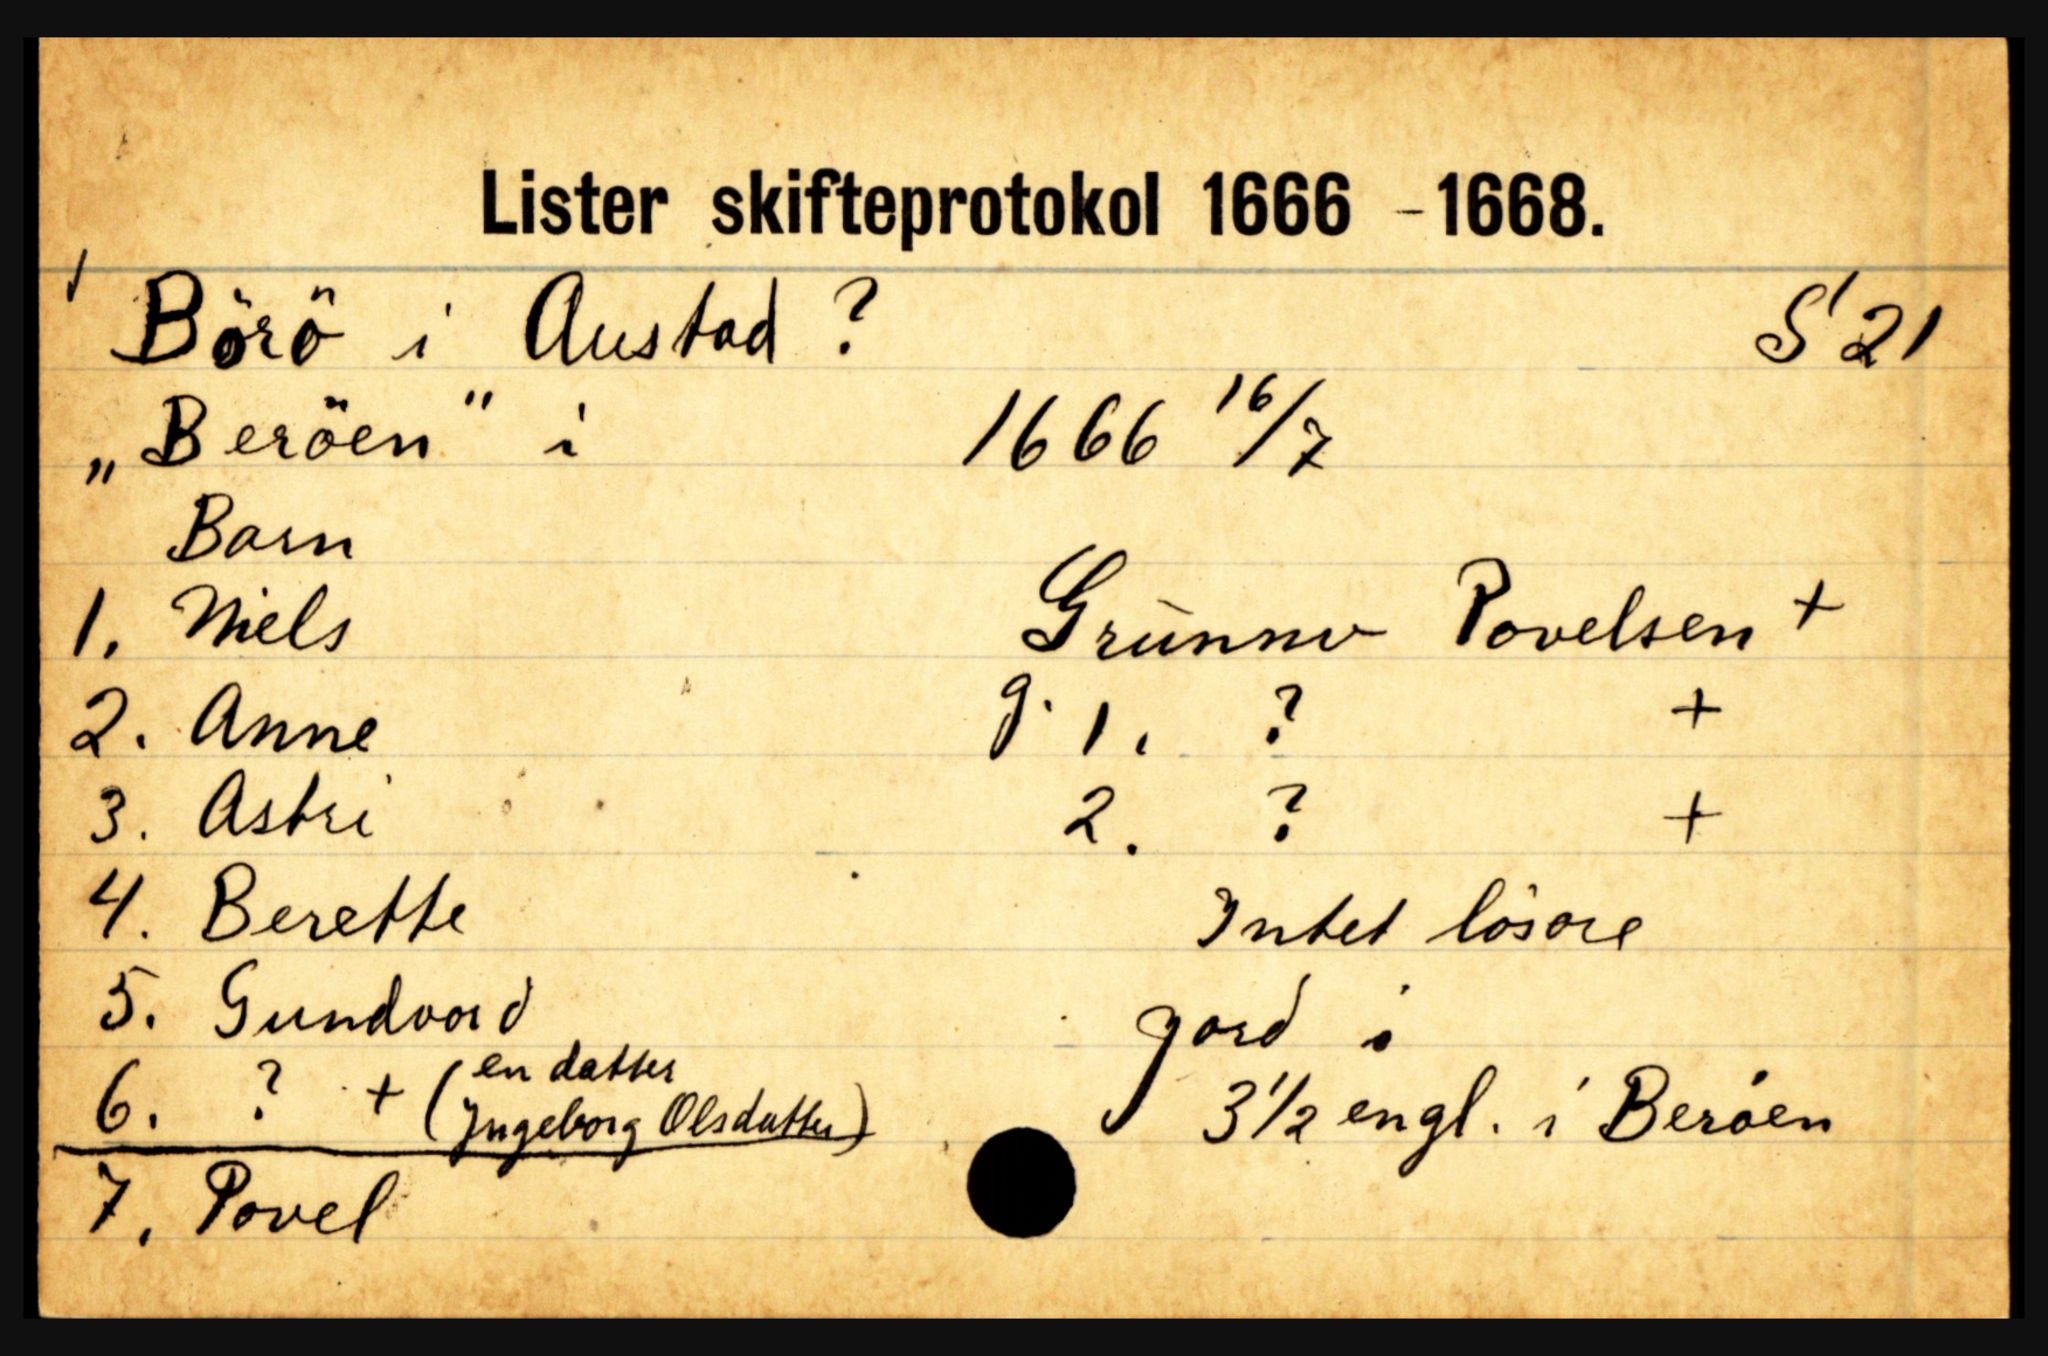 Lister skifteprotokol 1666 - 1668.
Börö i Austad ? S 21
„Beröen" i 1666 16/7
Barn
1. Niels Grunnv Povelsen +
2. Anne g. 1. ? +
3. Astri 2. ? +
4. Berette Intet lösöre
5. Gundvord jord i
6. ? + (en datter Ingeborg Olsdatter) 3 1/2 engl. i Beröen
7. Povel